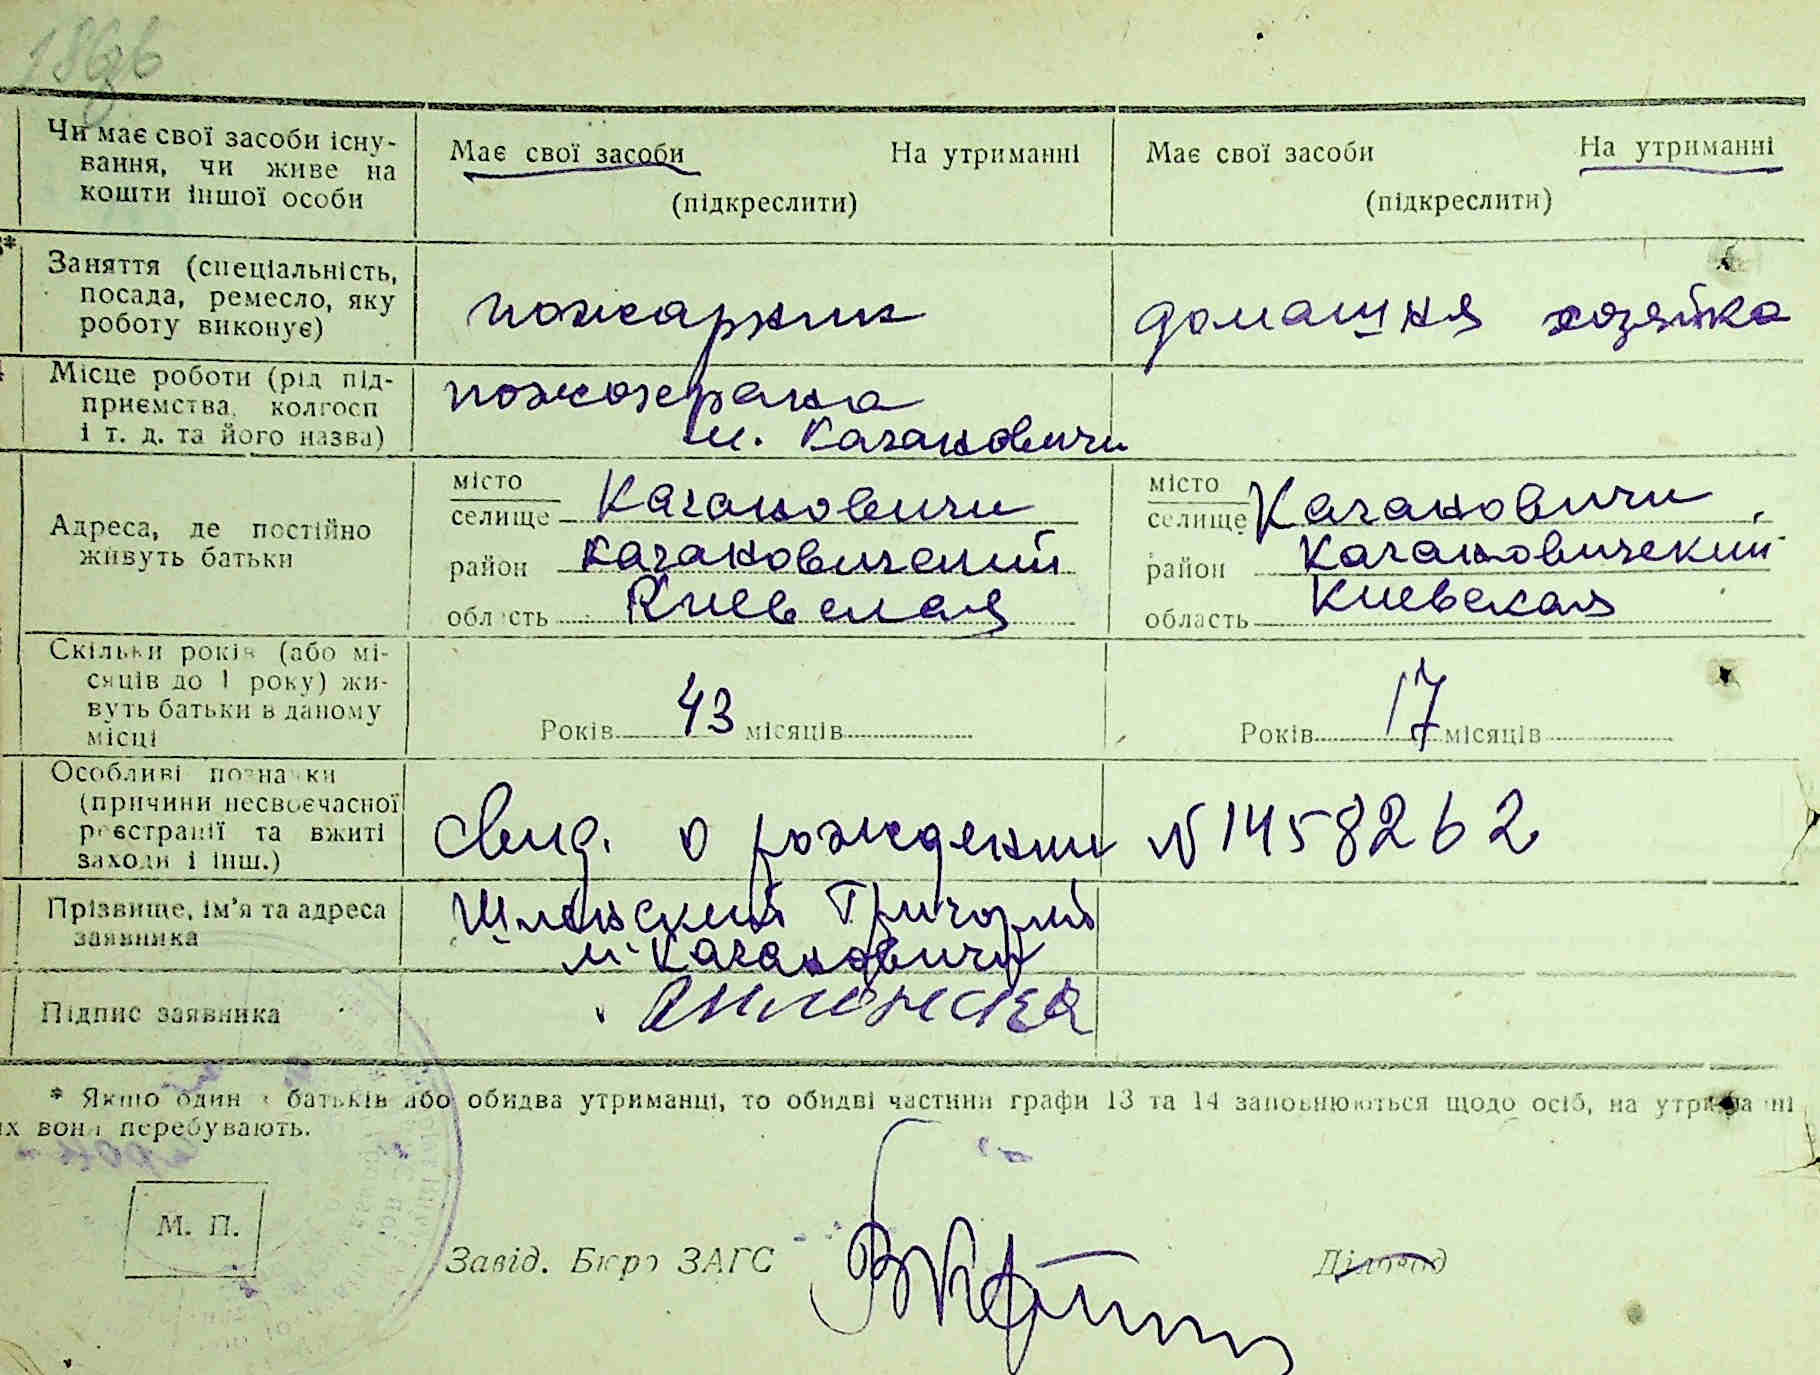 186
Чи має свої засоби існу-
вання, чи живе на
кошти іншої особи
Має свої засоби На утриманні
(підкреслити)
Має свої засоби На утриманні
(підкреслити)
Заняття (спеціальність,
посада, ремесло, яку
роботу виконує)
пожарник
домашня хозяйка
Місце роботи (рід під-
приємства, колгосп
і т. д. та його назва)
пожохрана
м. Кагановичи
Адреса, де постійно
живуть батьки
місто
селище Кагановичи
район Кагановичский
область Киевская
місто
селище Кагановичи
район Кагановичский
область Киевская
Скільки років (або мі-
сяців до 1 року) жи-
вуть батьки в даному
місці
Років 43 місяців
Років 17 місяців
Особливі позначки
(причини несвоєчасної
реєстрації та вжиті
заходи і інш.)
Свид. о рождении № 1458262
Прізвище, ім'я та адреса
заявника
Шлянский Григорий
м. Кагановичи
Підпис заявника
* Якщо один з батьків або обидва утриманці, то обидві частини графи 13 та 14 заповнюються щодо осіб, на утриманні
их вони перебувають.
М. П.
Завід. Бюро ЗАГС
Діловод